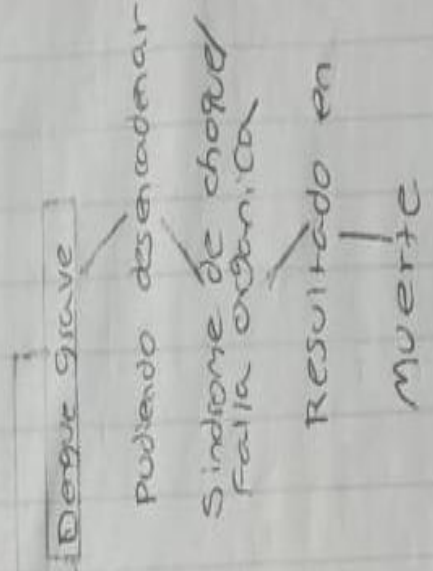 Dengue grave
Pudiendo desencadenar
Sindrome de choque/
Falla organica
Resultado en
Muerte